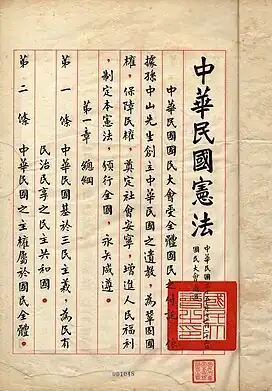 中華民國憲法
中華民國
國民大會
中華民國國民大會受全體國民之付託,依
據孫中山先生創立中華民國之遺教,為鞏固國
權,保障民權,奠定社會安寧,增進人民福利
,制定本憲法,頒行全國,永矢咸遵。
第一章 總綱
第一條 中華民國基於三民主義,為民有
民治民享之民主共和國。
第二條 中華民國之主權屬於國民全體。
001048